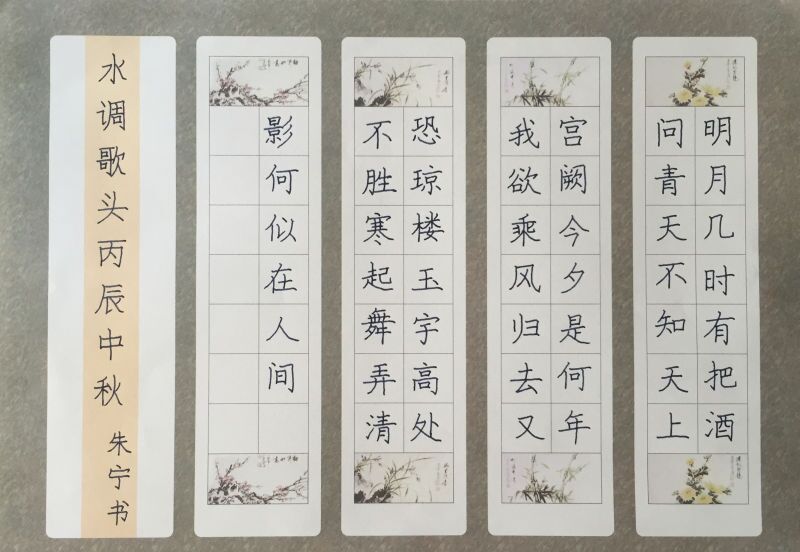 明月几时有把酒
问青天不知天上
宫阙今夕是何年
我欲乘风归去又
恐琼楼玉宇高处
不胜寒起舞弄清
影何似在人间
水调歌头丙辰中秋
朱宁书